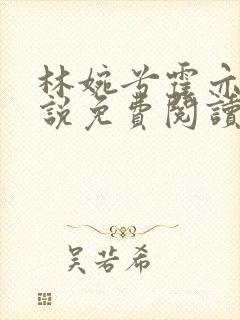 林婉兮霍亦
說免費閱讀
吳若希